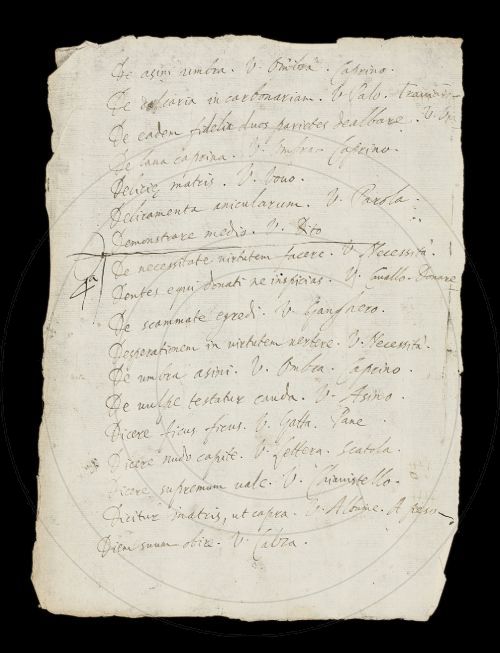 De asini umbra. V. Ombra. Caprino.
De calcaria in carbonariam. V. Palo.
De eadem fidelia duos parietes dealbare. V.
De lana caprina. V. Ombra. Caprino.
Deliciæ matris. V. Vovo.
Deliramenta anicularum. V. Parola.
Demonstrare medio. V. Dito
De necessitate virtutem facere. V. Necessità.
Dentes equi donati ne inspicias. V. Cavallo. Donare
De scammate egredi. V. Ganghero.
Desperationem in virtutem vertere. V. Necessità.
De umbra asini. V. Ombra. Caprino.
De vulpe testatur cauda. V. Asino.
Dicere ficus ficus. V. Gatta. Pane
Dicere nudo capite. V. Lettera. Scatola.
Dicere supremum vale. V. Chiavistello.
Dicitur matris, ut capra. V.
Diem suum obire. V. Calza.